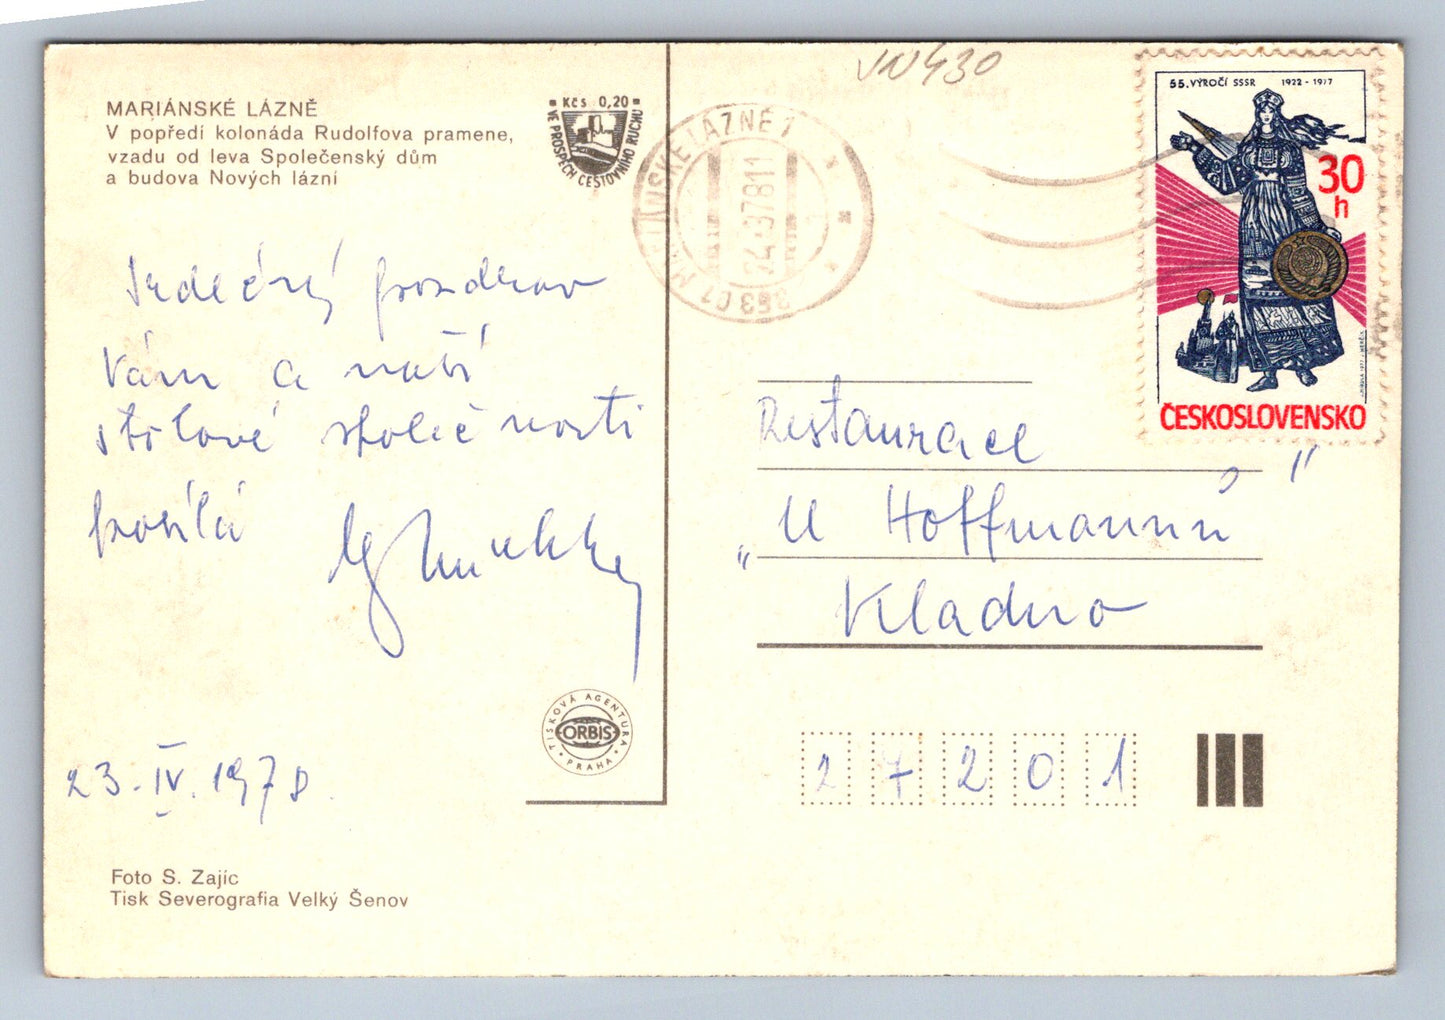 MARIÁNSKÉ LÁZNĚ
V popředí kolonáda Rudolfova pramene,
vzadu od leva Společenský dům
a budova Nových lázní
Kčs 0,20
VE PROSPĚCH CESTOVNÍHO RUCHU
Srdečný pozdrav
Vám a naší
stolové společnosti
posílá
23. IV. 1978.
TISKOVÁ AGENTURA
ORBIS
PRAHA
Foto S. Zajíc
Tisk Severografia Velký Šenov
VN430
MARIÁNSKÉ LÁZNĚ 1
353 01
55. VÝROČÍ SSSR 1922 - 1977
30
h
ČESKOSLOVENSKO
Restaurace
„U Hoffmannů"
Kladno
27201